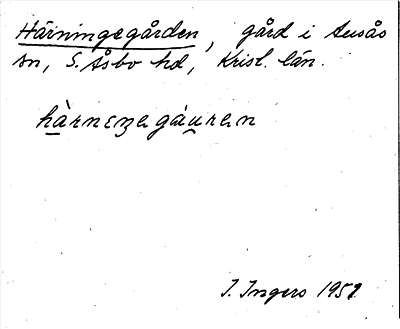 Härningegården, gård i Ausås
sn, S. Åsbo hd, Krist. län.
hàrnɛŋa gáu̯ra.n
I. Ingers 1951